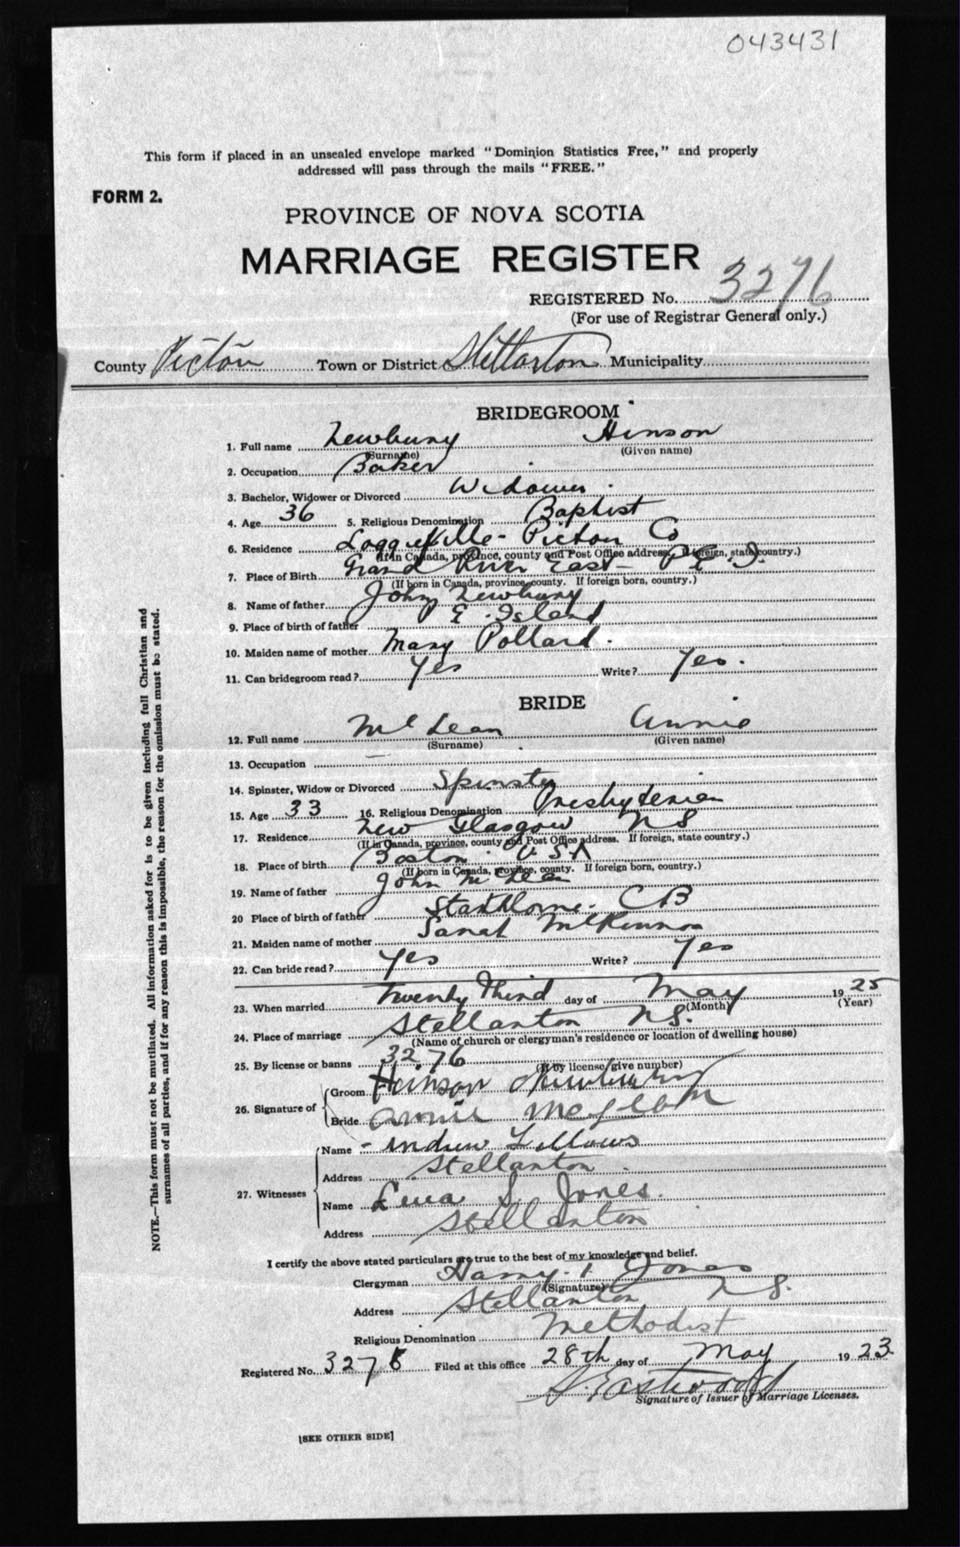 043431
This form if placed in an unsealed envelope marked "Dominion Statistics Free," and properly
addressed will pass through the mails "FREE."
FORM 2.
PROVINCE OF NOVA SCOTIA
MARRIAGE REGISTER
REGISTERED No. 3276
(For use of Registrar General only.)
County Pictou Town or District Stellarton Municipality
BRIDEGROOM
1. Full name Newbury Hinson
(Surname) (Given name)
2. Occupation Baker
3. Bachelor, Widower or Divorced Widower
4. Age 36 5. Religious Denomination Baptist
6. Residence Loggieville - Pictou Co
(If in Canada, province, county and Post Office address. If foreign, state country.)
7. Place of Birth Grand River East - P.E.I.
(If born in Canada, province, county. If foreign born, country.)
8. Name of father John Newbury
9. Place of birth of father P. E. Island
10. Maiden name of mother Mary Pollard
11. Can bridegroom read? Yes Write? Yes.
BRIDE
12. Full name McLean Annie
(Surname) (Given name)
13. Occupation
14. Spinster, Widow or Divorced Spinster
15. Age 33 16. Religious Denomination Presbyterian
17. Residence New Glasgow NS
(If in Canada, province, county and Post Office address. If foreign, state country.)
18. Place of birth Boston U.S.A
(If born in Canada, province, county. If foreign born, country.)
19. Name of father John McLean
20 Place of birth of father CB
21. Maiden name of mother Sarah McKinnon
22. Can bride read? Yes Write? Yes
23. When married Twenty Third day of May 1925
(Month) (Year)
24. Place of marriage Stellarton N.S.
(Name of church or clergyman's residence or location of dwelling house)
25. By license or banns 3276
(If by license/give number)
26. Signature of Groom Heinson Newbury
Bride Annie McLean
27. Witnesses Name Andrew Fellows
Address Stellarton
Name Lena S. Jones.
Address Stellarton
I certify the above stated particulars are true to the best of my knowledge and belief.
Clergyman Harry. Jones
(Signature)
Address Stellarton N.S.
Religious Denomination Methodist
Registered No. 3276 Filed at this office 28th day of May 1923
Eastwood
Signature of Issuer of Marriage Licenses.
[SEE OTHER SIDE]
NOTE.—This form must not be mutilated. All information asked for is to be given including full Christian and
surnames of all parties, and if for any reason this is impossible, the reason for the omission must be stated.